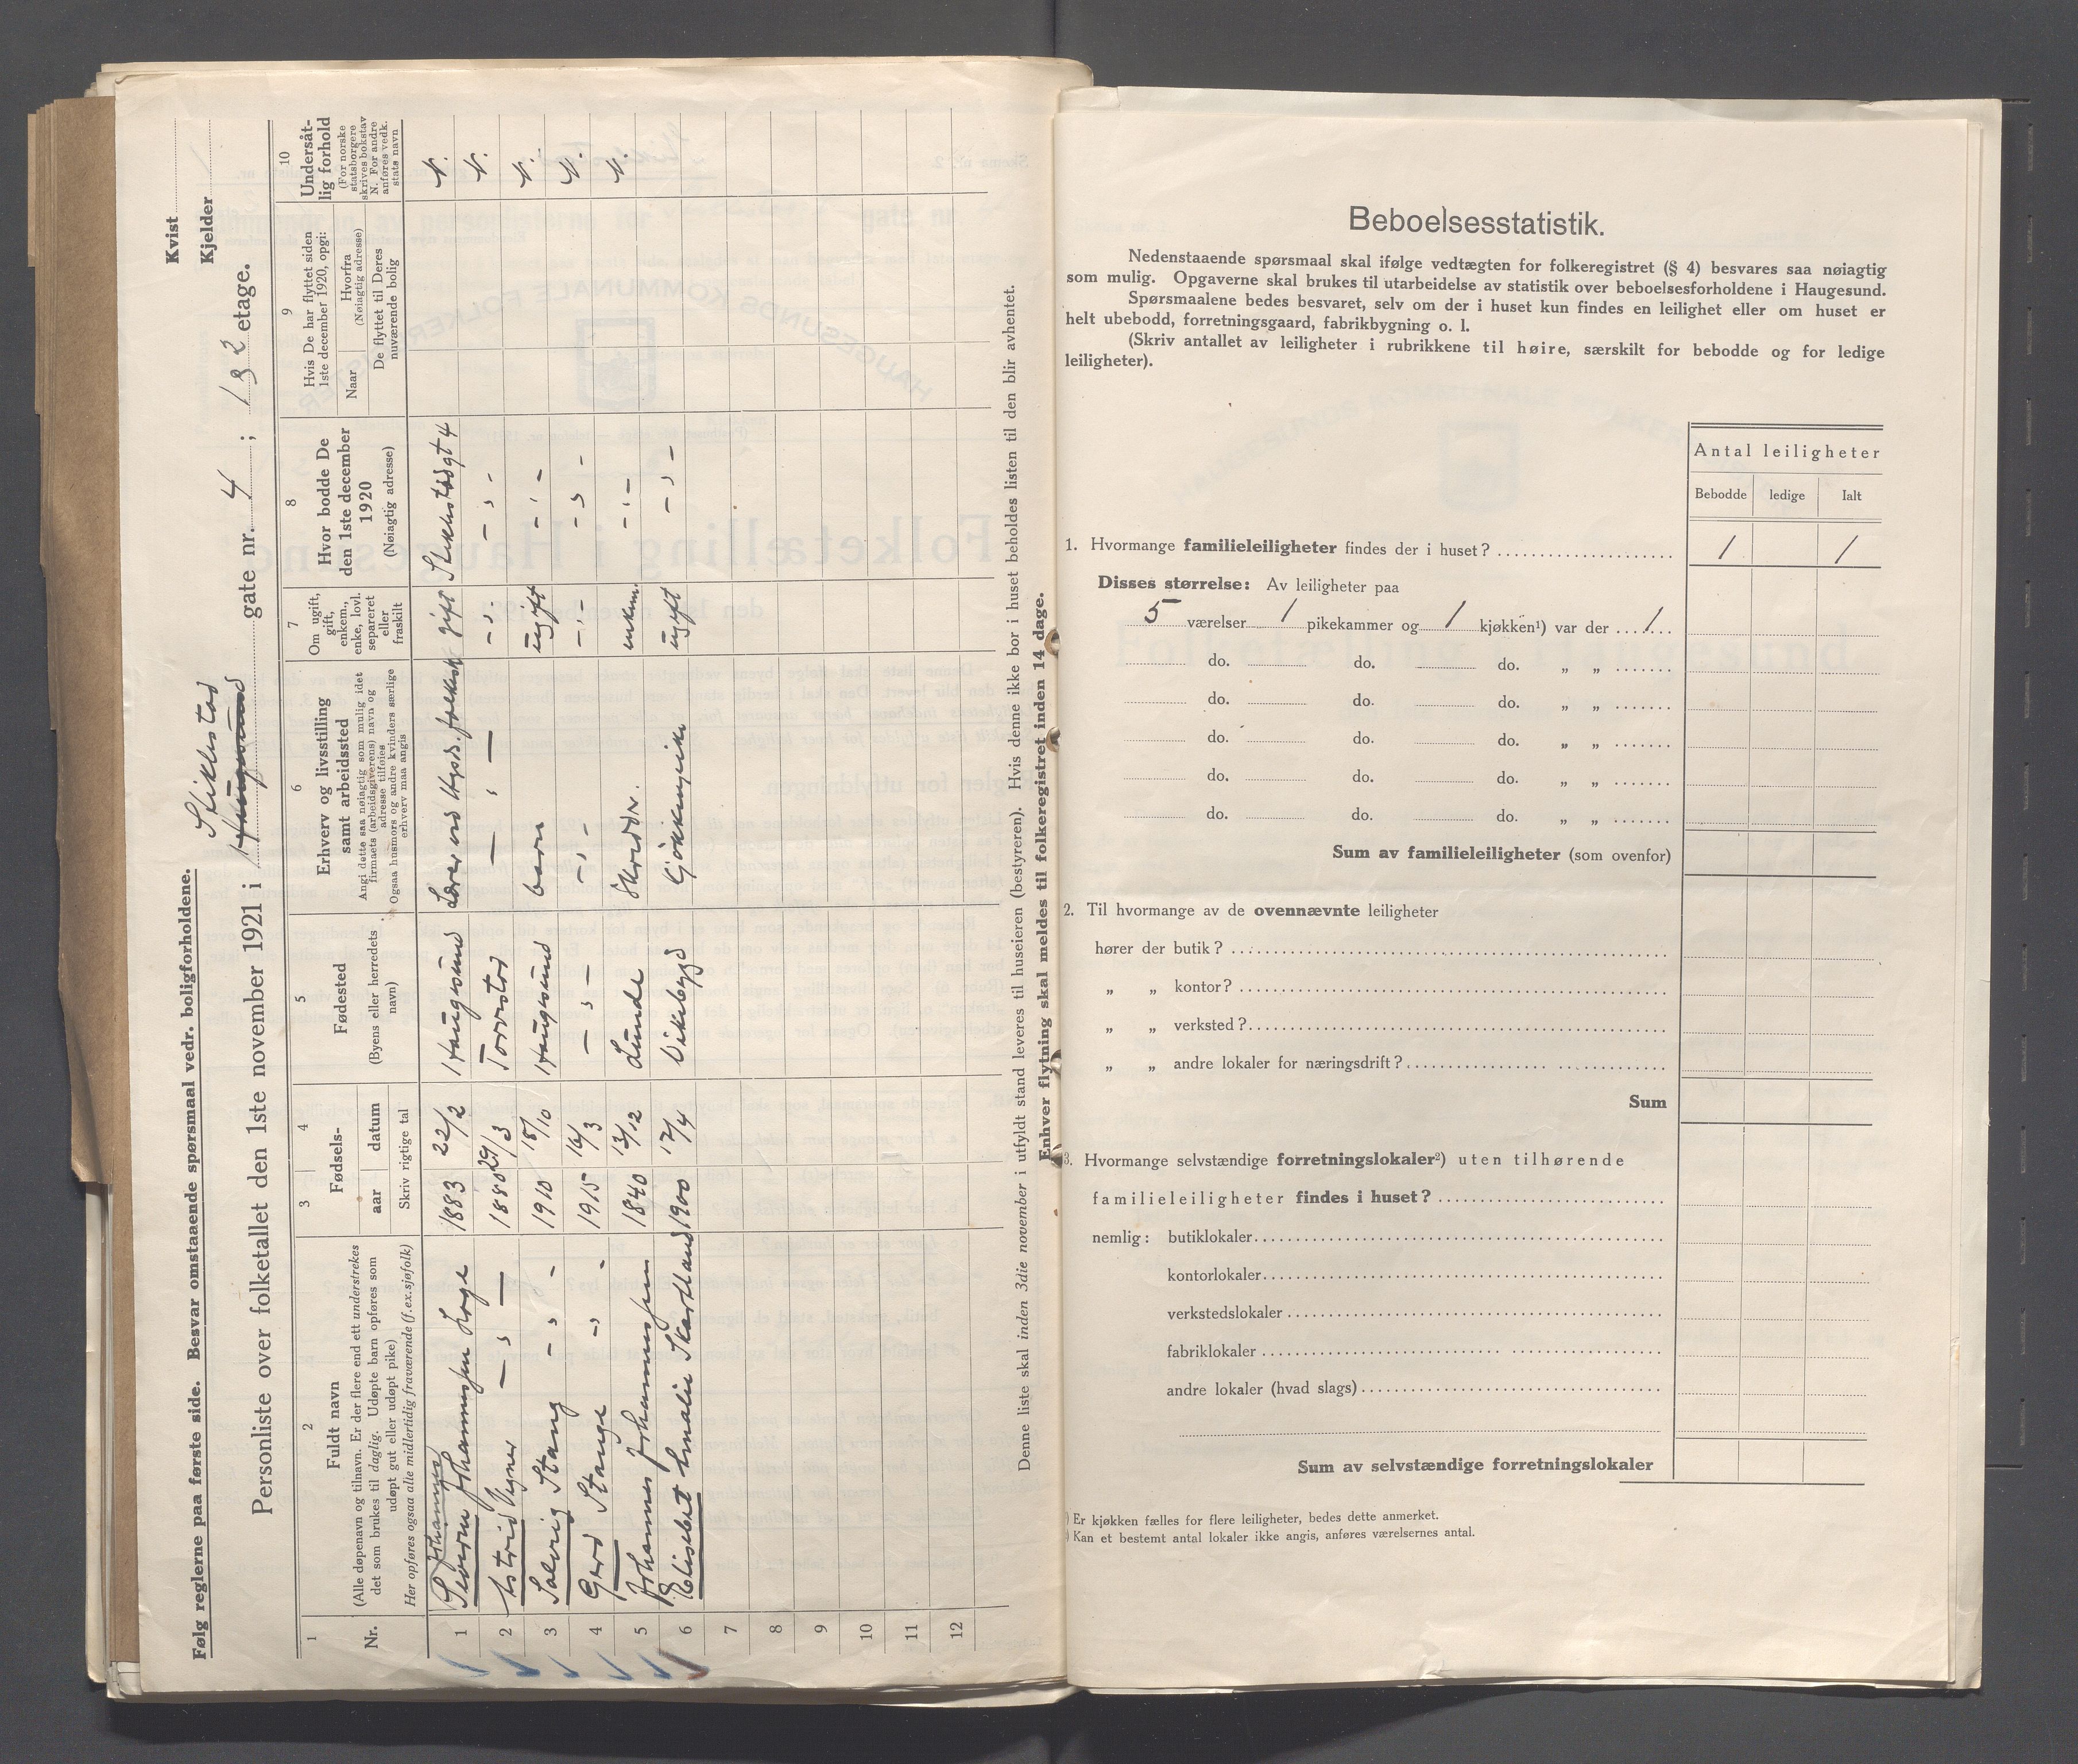 Følg reglerne paa første side. Besvar omstaaende spørsmaal vedr. boligforholdene.
Kvist
Kjelder
Stiklestad
Personliste over folketallet den 1ste november 1921 i Haugesund gate nr. 4 ; 1 & 2 etage.
1 2 3 4 5 6 7 8 9 10
Nr.
Fuldt navn
(Alle døpenavn og tilnavn. Er der flere end ett understrekes
det som brukes til daglig. Udøpte barn opføres som
udøpt gut eller udøpt pike)
Her opføres ogsaa alle midlertidig fraværende (f.ex. sjøfolk)
Fødsels-
aar datum
Skriv rigtige tal
Fødested
(Byens eller herredets
navn)
Erhverv og livsstilling
samt arbeidssted
Angi dette saa nøiagtig som mulig idet
firmaets (arbeidsgiverens) navn og
adresse tilføies
Ogsaa husmors og andre kvinders særlige
erhverv maa angis
Om ugift,
gift,
enkem.,
enke, lovl.
separeret
eller
fraskilt
Hvor bodde De
den 1ste december
1920
(Nøiagtig adresse)
Hvis De har flyttet siden
1ste december 1920, opgi:
Naar
Hvorfra
(Nøiagtig adresse)
De flyttet til Deres
nuværende bolig
Undersåt-
lig forhold
(For norske
statsborgere
skrives bokstav
N. For andre
anføres vedk.
stats navn
Johannes
1 Severin Johannessen Loge 1883 22/2 Haugesund Lærer ved Hgsds. folkesk gift Stiklestadgt 4 N.
2 Astrid Vegner — " — 1880 29/3 Torvestad — " — - " - - " - N.
3 Solveig Stang - " - 1910 18/10 Haugesund barn ugift - " - N.
4 Gerd Stange - " - 1915 16/3 - " - - " - - " - - " - N.
5 Johannes Johannessen 1840 13/12 Lunde Skrædder. enkem. - " - N.
6 Elisabet Amalie Skartland 1900 17/4 Vikebygd ugift - " -
7
8
9
10
11
12
Denne liste skal inden 3die november i utfyldt stand leveres til huseieren (bestyreren). Hvis denne ikke bor i huset beholdes listen til den blir avhentet.
Enhver flytning skal meldes til folkeregistret inden 14 dage.
Beboelsesstatistik.
Nedenstaaende spørsmaal skal ifølge vedtægten for folkeregistret (§ 4) besvares saa nøiagtig
som mulig. Opgaverne skal brukes til utarbeidelse av statistik over beboelsesforholdene i Haugesund.
Spørsmaalene bedes besvaret, selv om der i huset kun findes en leilighet eller om huset er
helt ubebodd, forretningsgaard, fabrikbygning o. l.
(Skriv antallet av leiligheter i rubrikkene til høire, særskilt for bebodde og for ledige
leiligheter).
Antal leiligheter
Bebodde ledige Ialt
1. Hvormange familieleiligheter findes der i huset? 1 1
Disses størrelse: Av leiligheter paa
5 værelser 1 pikekammer og 1 kjøkken¹) var der 1
do. do. do. „ „
do. do. do. „ „
do. do. do. „ „
do. do. do. „ „
do. do. do. „ „
Sum av familieleiligheter (som ovenfor)
2. Til hvormange av de ovennævnte leiligheter
hører der butik?
„ „ kontor?
„ „ verksted?
„ „ andre lokaler for næringsdrift?
Sum
3. Hvormange selvstændige forretningslokaler²) uten tilhørende
familieleiligheter findes i huset?
nemlig: butiklokaler
kontorlokaler
verkstedslokaler
fabriklokaler
andre lokaler (hvad slags)
Sum av selvstændige forretningslokaler
¹) Er kjøkken fælles for flere leiligheter, bedes dette anmerket.
²) Kan et bestemt antal lokaler ikke angis, anføres værelsernes antal.